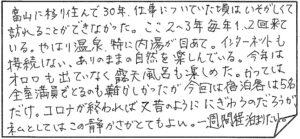 富山に移り住んで30年、仕事についていた頃はいそがしくて
訪れることができなかった。ここ2〜3年毎年1、2回来て
いる。やはり温泉、特に内湯が目あて。インターネットも
接続しない、ありのままの自然を楽しんでいる。今年は
オロロも出ていなく露天風呂も楽しめた。かつては
全室満員でとるのも難しかったが今回は宿泊客は5名
だけ。コロナが終われば又昔のようににぎゅうのだろうが
私としてはこの静かさがとてもよい。一週間程泊まりたい